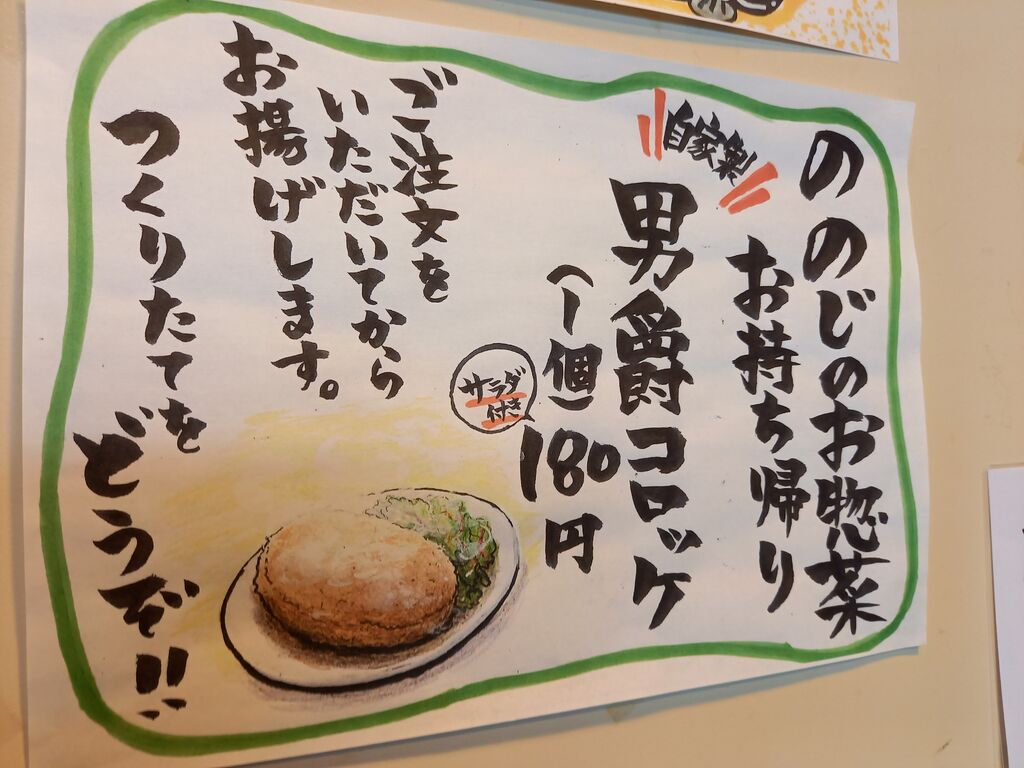 ののじのお惣菜
お持ち帰り
自家製
男爵コロッケ
(一個)180円
サラダ
付き
ご注文を
いただいてから
お揚げします。
つくりたてを
どうぞ!!